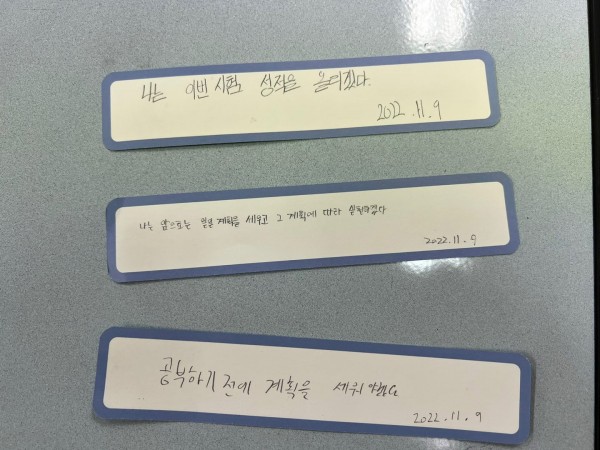 나는 이번 시험 성적을 올리겠다.
2022.11.9
나는 앞으로는 계획을 세우고 그 계획에 따라 실천하겠다
2022.11.9
공부하기 전에 계획을 세워
2022.11.9